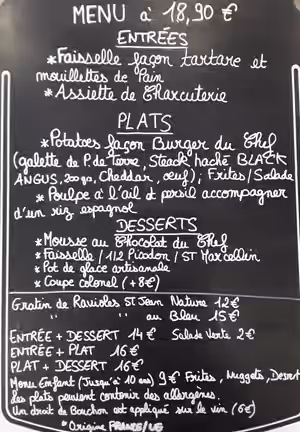 MENU à 18,90 €
ENTRÉES
*Faisselle façon tartare et
mouillettes de Pain
*Assiette de Charcuterie
PLATS
*Potatoes façon Burger du Chef
(galette de P.de Terre, Steack haché BLACK
ANGUS, 200gr, Cheddar, œuf); Frites/Salade
*Poulpe à l'ail et persil accompagner
d'un riz espagnol
DESSERTS
*Mousse au Chocolat du Chef
*Faisselle / 1/2 Picodon / ST Marcellin
*Pot de glace artisanale
*Coupe colonel (+8€)
Gratin de Ravioles ST Jean Nature 12€
" " au Bleu 15€
ENTRÉE + DESSERT 14€ Salade Verte 2€
ENTRÉE + PLAT 16€
PLAT + DESSERT 16€
Menu Enfant (Jusqu'à 10 ans) 9€ Frites, Nuggets, Dessert
Les plats peuvent contenir des allergènes.
Un droit de Bouchon est appliqué sur le vin (6€)
*Origine FRANCE/UE